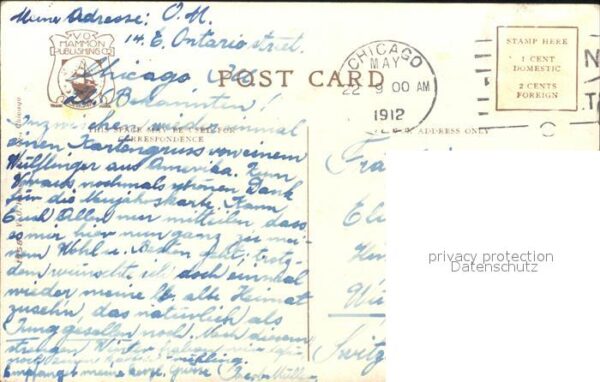 Meine Adresse: O. M.
14. E. Ontario street.
Chicago
V.O.
HAMMON
PUBLISHING CO.
POST CARD
CHICAGO
MAY
22 9 00 AM
1912
STAMP HERE
1 CENT
DOMESTIC
2 CENTS
FOREIGN
N
T
Bekannten!
THIS SPACE MAY BE USED FOR
CORRESPONDENCE
ADDRESS ONLY
Inzwischen wieder einmal
einen Kartengruss von einem
Wülflinger aus Amerika. Zum
Voraus nochmals schönen Dank
für die Neujahrskarte. Kann
Euch Allen nur mitteilen, dass
es mir hier nun ganz zu mei-
nem Wohl u. Besten geht, trotz-
dem wünschte ich doch einmal
wieder meine lb. alte Heimat
zusehn, das natürlich als
Junggesellen noch. Nach diesem
strengen Winter
noch
Empfanget meine herzl. Grüsse
Fra
El
Wü
Switz
privacy protection
Datenschutz